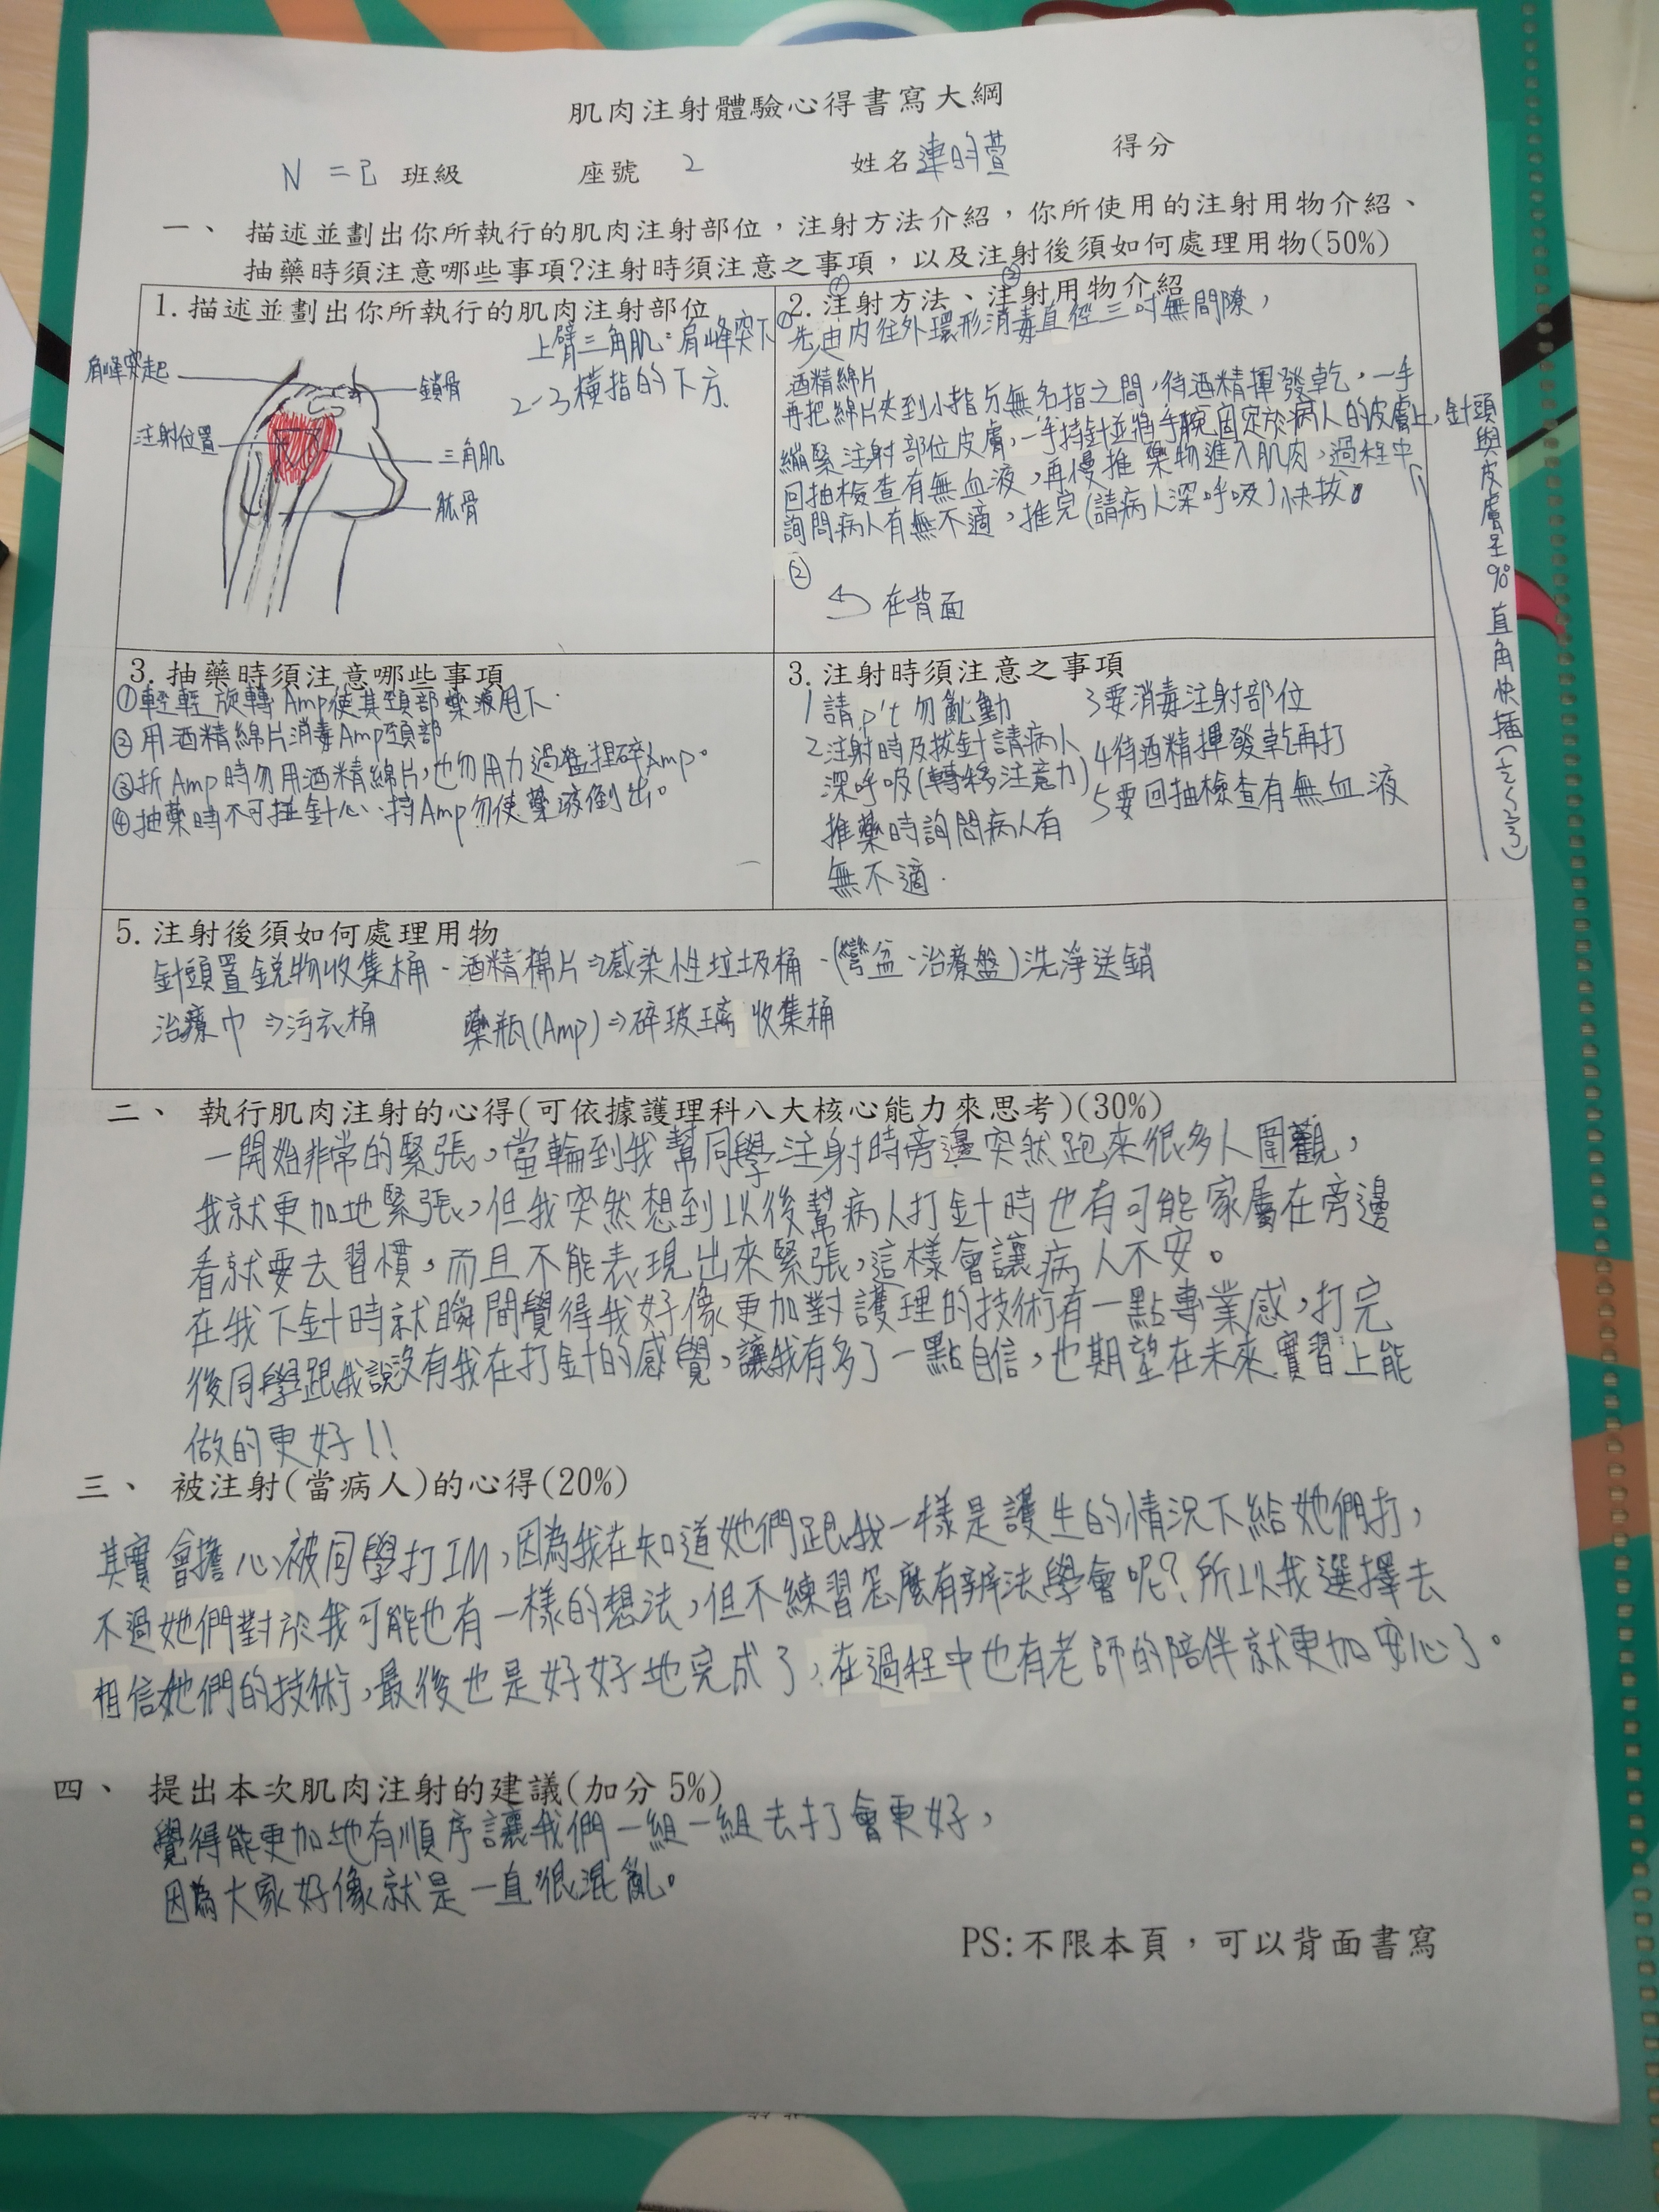 肌肉注射體驗心得書寫大綱
N 二己 班級 座號 2 姓名 連昀萱 得分
一、 描述並劃出你所執行的肌肉注射部位，注射方法介紹，你所使用的注射用物介紹、
抽藥時須注意哪些事項?注射時須注意之事項，以及注射後須如何處理用物(50%)
1. 描述並劃出你所執行的肌肉注射部位
上臂三角肌:肩峰突下
2-3橫指的下方.
肩峰突起
鎖骨
注射位置
三角肌
肱骨
① ②
2. 注射方法、注射用物介紹
①先由內往外環形消毒直徑三吋無間隙，
酒精綿片
再把綿片夾到小指与無名指之間，待酒精揮發乾，一手
繃緊注射部位皮膚，一手持針並將手腕固定於病人的皮膚上，針頭
與皮膚呈90°直角快插(½~2/3)
回抽檢查有無血液，再慢推藥物進入肌肉，過程中
詢問病人有無不適，推完(請病人深呼吸)快拔。
②
在背面
3. 抽藥時須注意哪些事項
①輕輕旋轉Amp使其頸部藥液甩下.
②用酒精綿片消毒Amp頸部
③折Amp時勿用酒精綿片，也勿用力過猛捏碎Amp。
④抽藥時不可碰針心、持Amp勿使藥液倒出。
3. 注射時須注意之事項
1請p't勿亂動
2注射時及拔針請病人
深呼吸(轉移注意力)
推藥時詢問病人有
無不適.
3要消毒注射部位
4待酒精揮發乾再打
5要回抽檢查有無血液
5. 注射後須如何處理用物
針頭置銳物收集桶、酒精棉片⇒感染性垃圾桶、(彎盆、治療盤)洗淨送銷
治療巾⇒污衣桶 藥瓶(Amp)⇒碎玻璃收集桶
二、 執行肌肉注射的心得(可依據護理科八大核心能力來思考)(30%)
一開始非常的緊張，當輪到我幫同學注射時旁邊突然跑來很多人圍觀，
我就更加地緊張，但我突然想到以後幫病人打針時也有可能家屬在旁邊
看就要去習慣，而且不能表現出來緊張，這樣會讓病人不安。
在我下針時就瞬間覺得我好像更加對護理的技術有一點專業感，打完
後同學跟我說沒有我在打針的感覺，讓我有多了一點自信，也期望在未來實習上能
做的更好!!
三、 被注射(當病人)的心得(20%)
其實會擔心被同學打IM，因為我在知道她們跟我一樣是護生的情況下給她們打，
不過她們對於我可能也有一樣的想法，但不練習怎麼有辦法學會呢?所以我選擇去
相信她們的技術，最後也是好好地完成了，在過程中也有老師的陪伴就更加安心了。
四、 提出本次肌肉注射的建議(加分 5%)
覺得能更加地有順序讓我們一組一組去打會更好，
因為大家好像就是一直很混亂。
PS:不限本頁，可以背面書寫